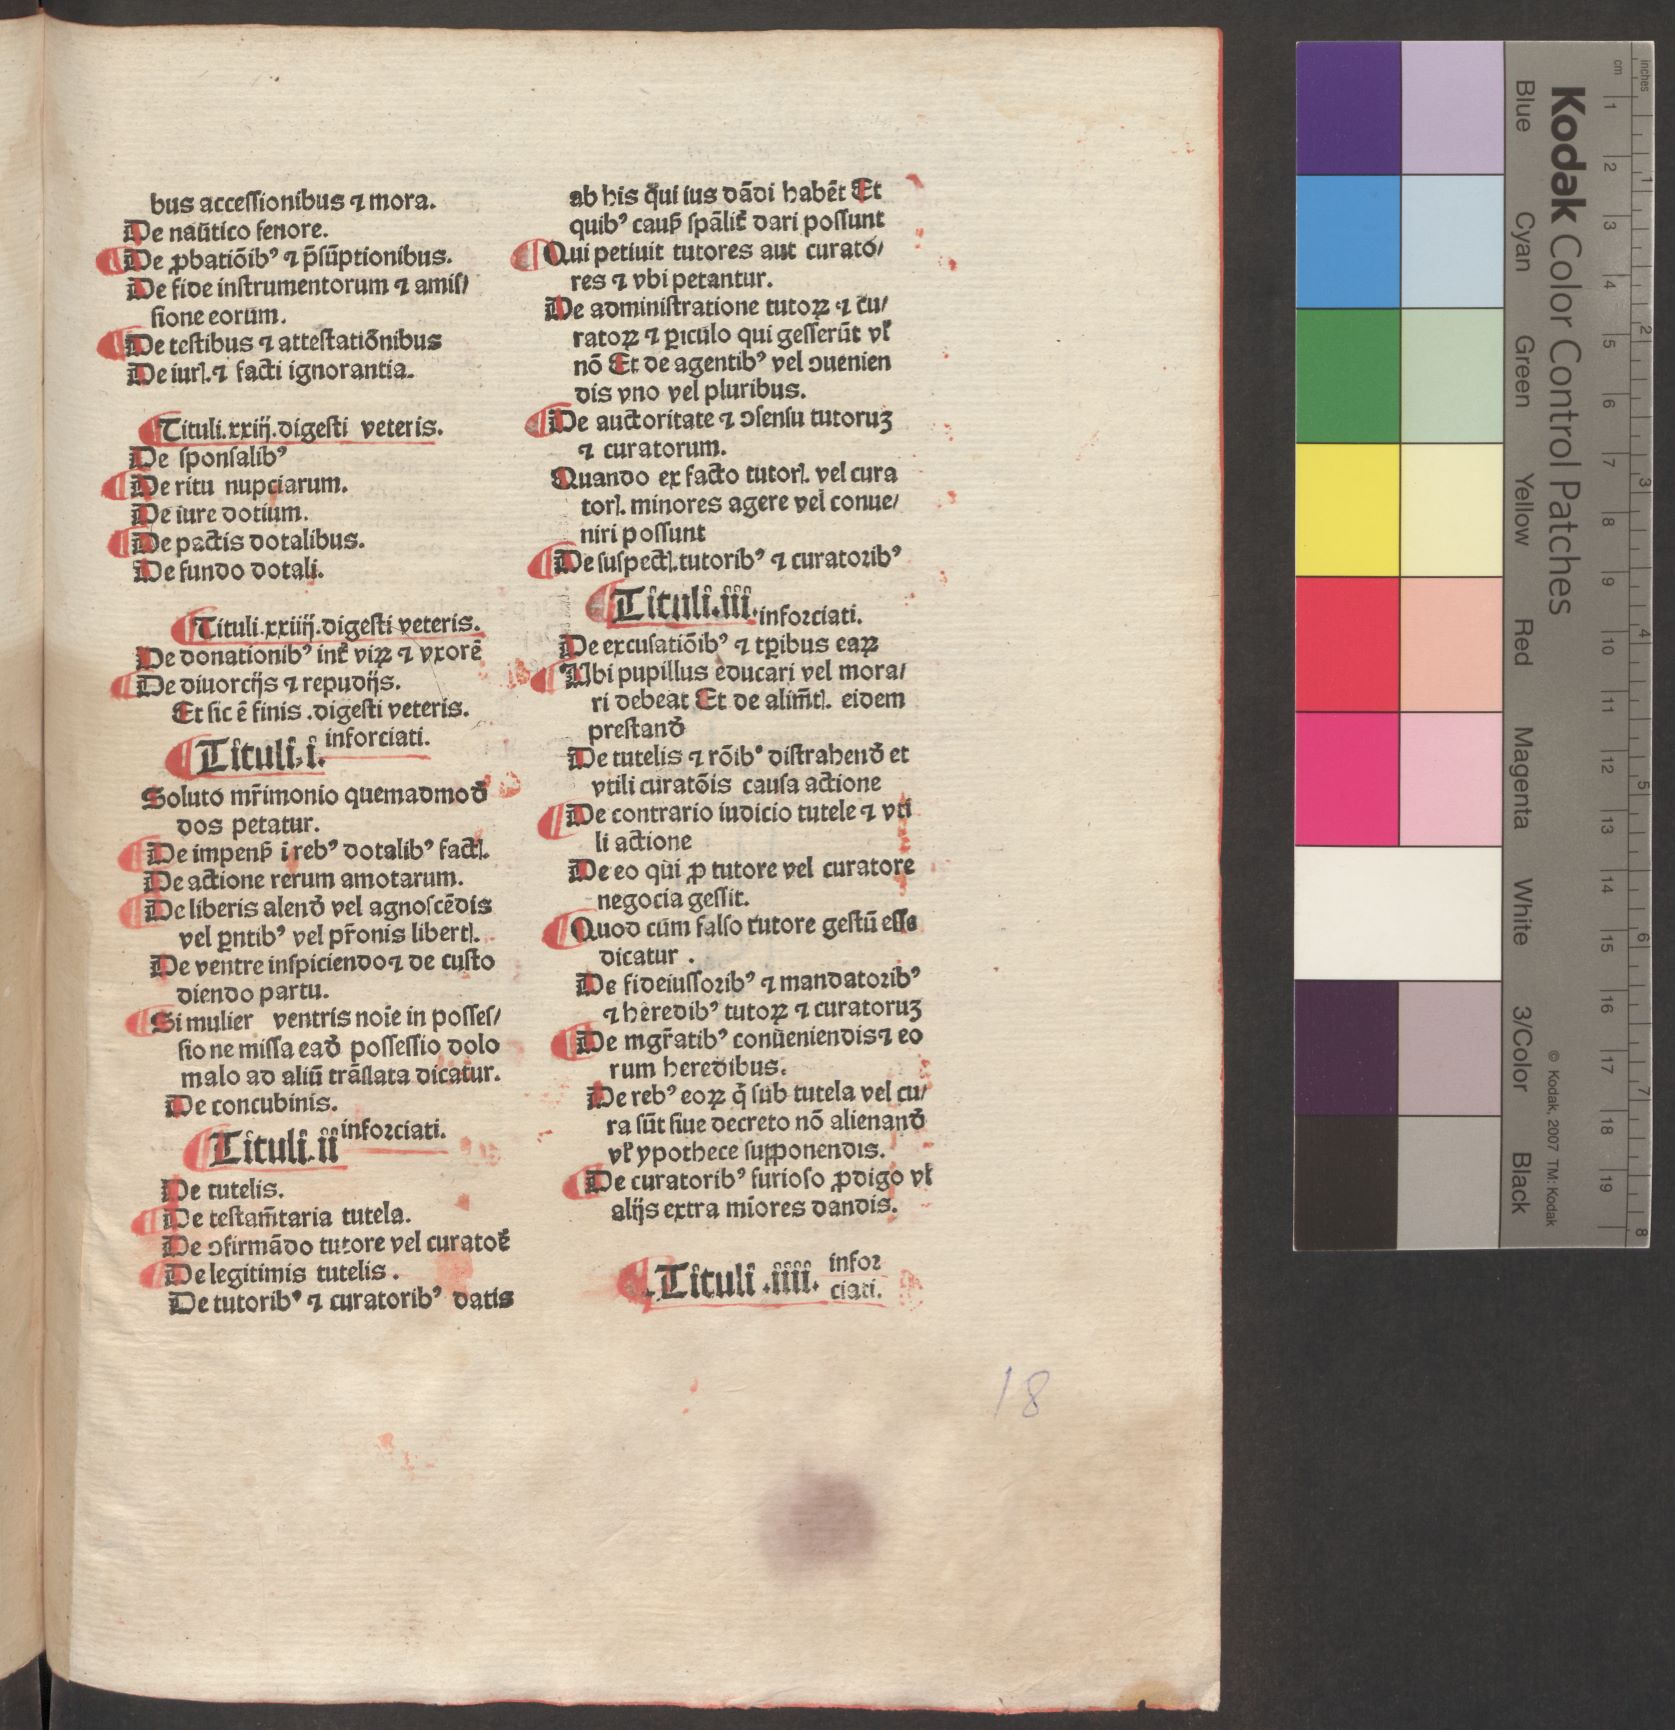 bus accessionibus ⁊ mora.
De nautico fenore.
De ꝓbatiōibꝰ ⁊ p̄sūptionibus.
De fide instrumentorum ⁊ amis/
sione eorum.
De testibus ⁊ attestatiōnibus
De iurꝭ. ⁊ facti ignorantia.
Tituli.xxiij.digesti veteris.
De sponsalibꝰ
De ritu nupciarum.
De iure dotium.
De pactis dotalibus.
De fundo dotali.
Tituli.xxiiij.digesti veteris.
De donationibꝰ int̄ viꝝ ⁊ vxorē
De diuorcijs ⁊ repudijs.
Et sic ē finis .digesti veteris.
Tituli.i. inforciati.
Soluto mr̄imonio quemadmod̄
dos petatur.
De impenß i rebꝰ dotalibꝰ factꝭ.
De actione rerum amotarum.
De liberis alend̄ vel agnoscēdis
vel ꝑntibꝰ vel pr̄onis libertꝭ.
De ventre inspiciendo ⁊ de custo
diendo partu.
Si mulier ventris noīe in posses/
sio ne missa ead̄ possessio dolo
malo ad aliū trāslata dicatur.
De concubinis.
Tituli.ii inforciati.
De tutelis.
De testam̄taria tutela.
De ꝯfirmādo tutore vel curatoē
De legitimis tutelis .
De tutoribꝰ ⁊ curatoribꝰ datis
ab his qui ius dādi habēt Et
quibꝰ cauß spālit̄ dari possunt
Qui petiuit tutores aut curato/
res ⁊ vbi petantur.
De administratione tutoꝝ ⁊ cu/
ratoꝝ ⁊ ꝑiculo qui gesserūt vl̄
nō Et de agentibꝰ vel ꝯuenien
dis vno vel pluribus.
De auctoritate ⁊ ꝯsensu tutoruꝫ
⁊ curatorum.
Quando ex facto tutorꝭ. vel cura
torꝭ. minores agere vel conue/
niri possunt
De suspectꝭ.tutoribꝰ ⁊ curatoribꝰ
Tituli.iii. inforciati.
De excusatiōibꝰ ⁊ tꝑibus eaꝝ
Ubi pupillus educari vel mora/
ri debeat Et de alim̄tꝭ. eidem
prestand̄
De tutelis ⁊ rōibꝰ distrahend̄ et
vtili curatōis causa actione
De contrario iudicio tutele ⁊ vti
li actione
De eo qui ꝓ tutore vel curatore
negocia gessit.
Quod cum falso tutore gestū esse
dicatur .
De fideiussoribꝰ ⁊ mandatoribꝰ
⁊ heredibꝰ tutoꝝ ⁊ curatoruꝫ
De mgr̄atibꝰ conueniendis ⁊ eo
rum heredibus.
De rebꝰ eoꝝ q̇ sub tutela vel cu/
ra sūt siue decreto nō alienand̄
vl̄ ypothece supponendis.
De curatoribꝰ furioso ꝓdigo vl̄
alijs extra miores dandis.
Tituli .iiii. infor
ciati.
18
Kodak Color Control Patches
Blue
Cyan
Green
Yellow
Red
Magenta
White
3/Color
Black
© Kodak, 2007 TM: Kodak
cm 1 2 3 4 5 6 7 8 9 10 11 12 13 14 15 16 17 18 19
inches 1 2 3 4 5 6 7 8